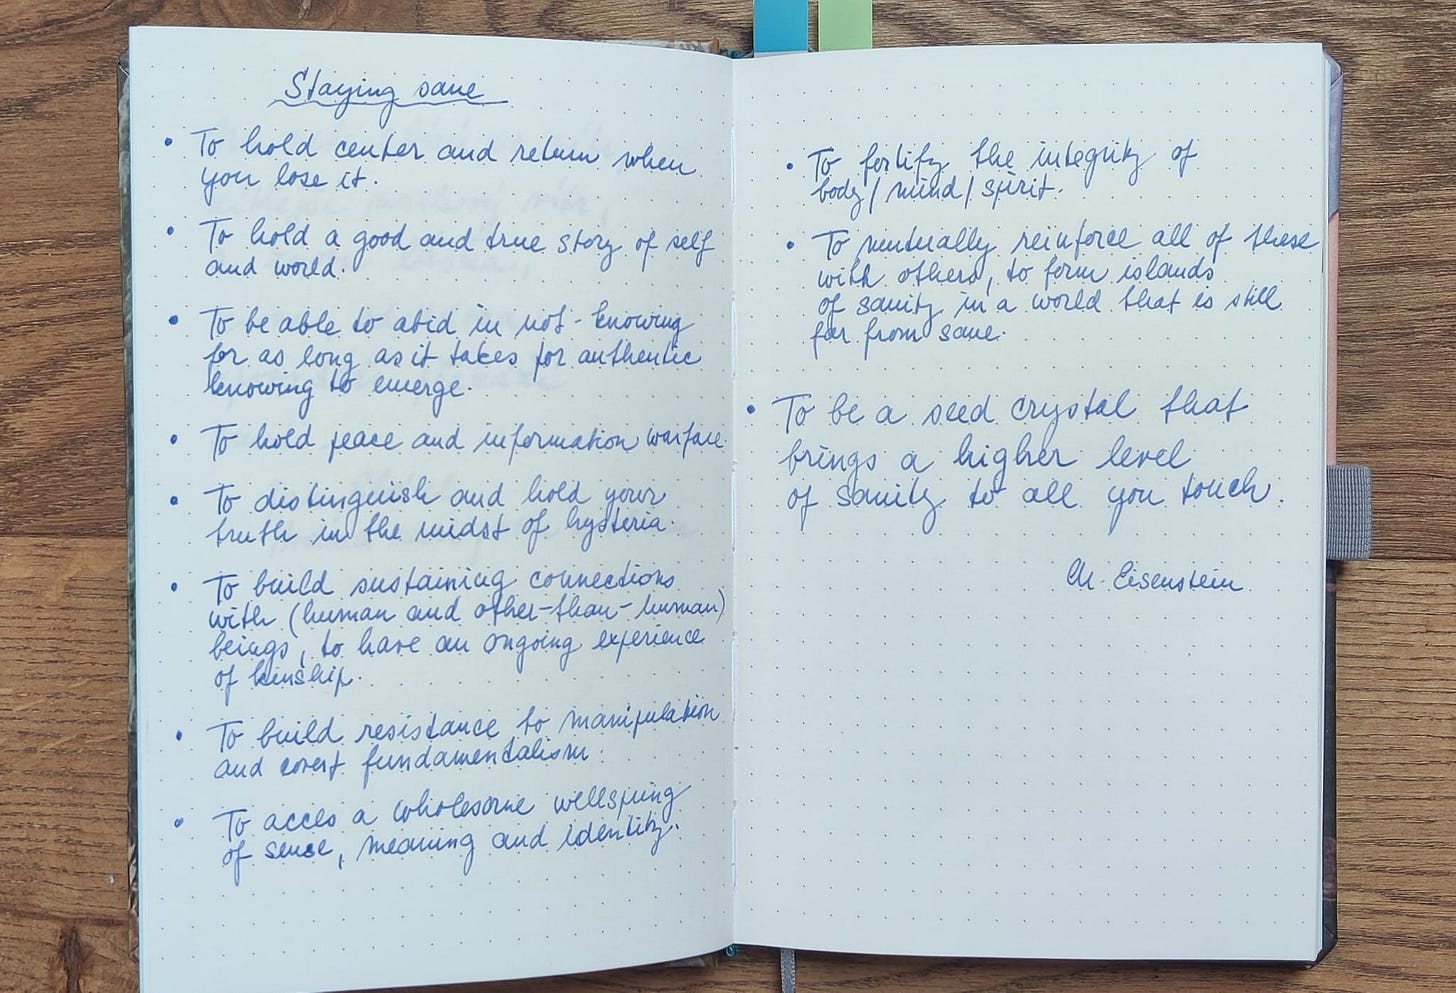 Staying sane
• To hold center and return when
you lose it.
• To hold a good and true story of self
and world.
• To be able to abid in not-knowing
for as long as it takes for authentic
knowing to emerge.
• To hold peace and information warfare.
• To distinguish and hold your
truth in the midst of hysteria.
• To build sustaining connections
with (human and other-than-human)
beings, to have an ongoing experience
of kinship.
• To build resistance to manipulation
and covert fundamentalism.
• To acces a wholesome wellspring
of sense, meaning and identity.
• To fortify the integrity of
body/mind/spirit.
• To mutually reinforce all of these
with others, to form islands
of sanity in a world that is still
far from sane.
• To be a seed crystal that
brings a higher level
of sanity to all you touch.
Ch. Eisenstein